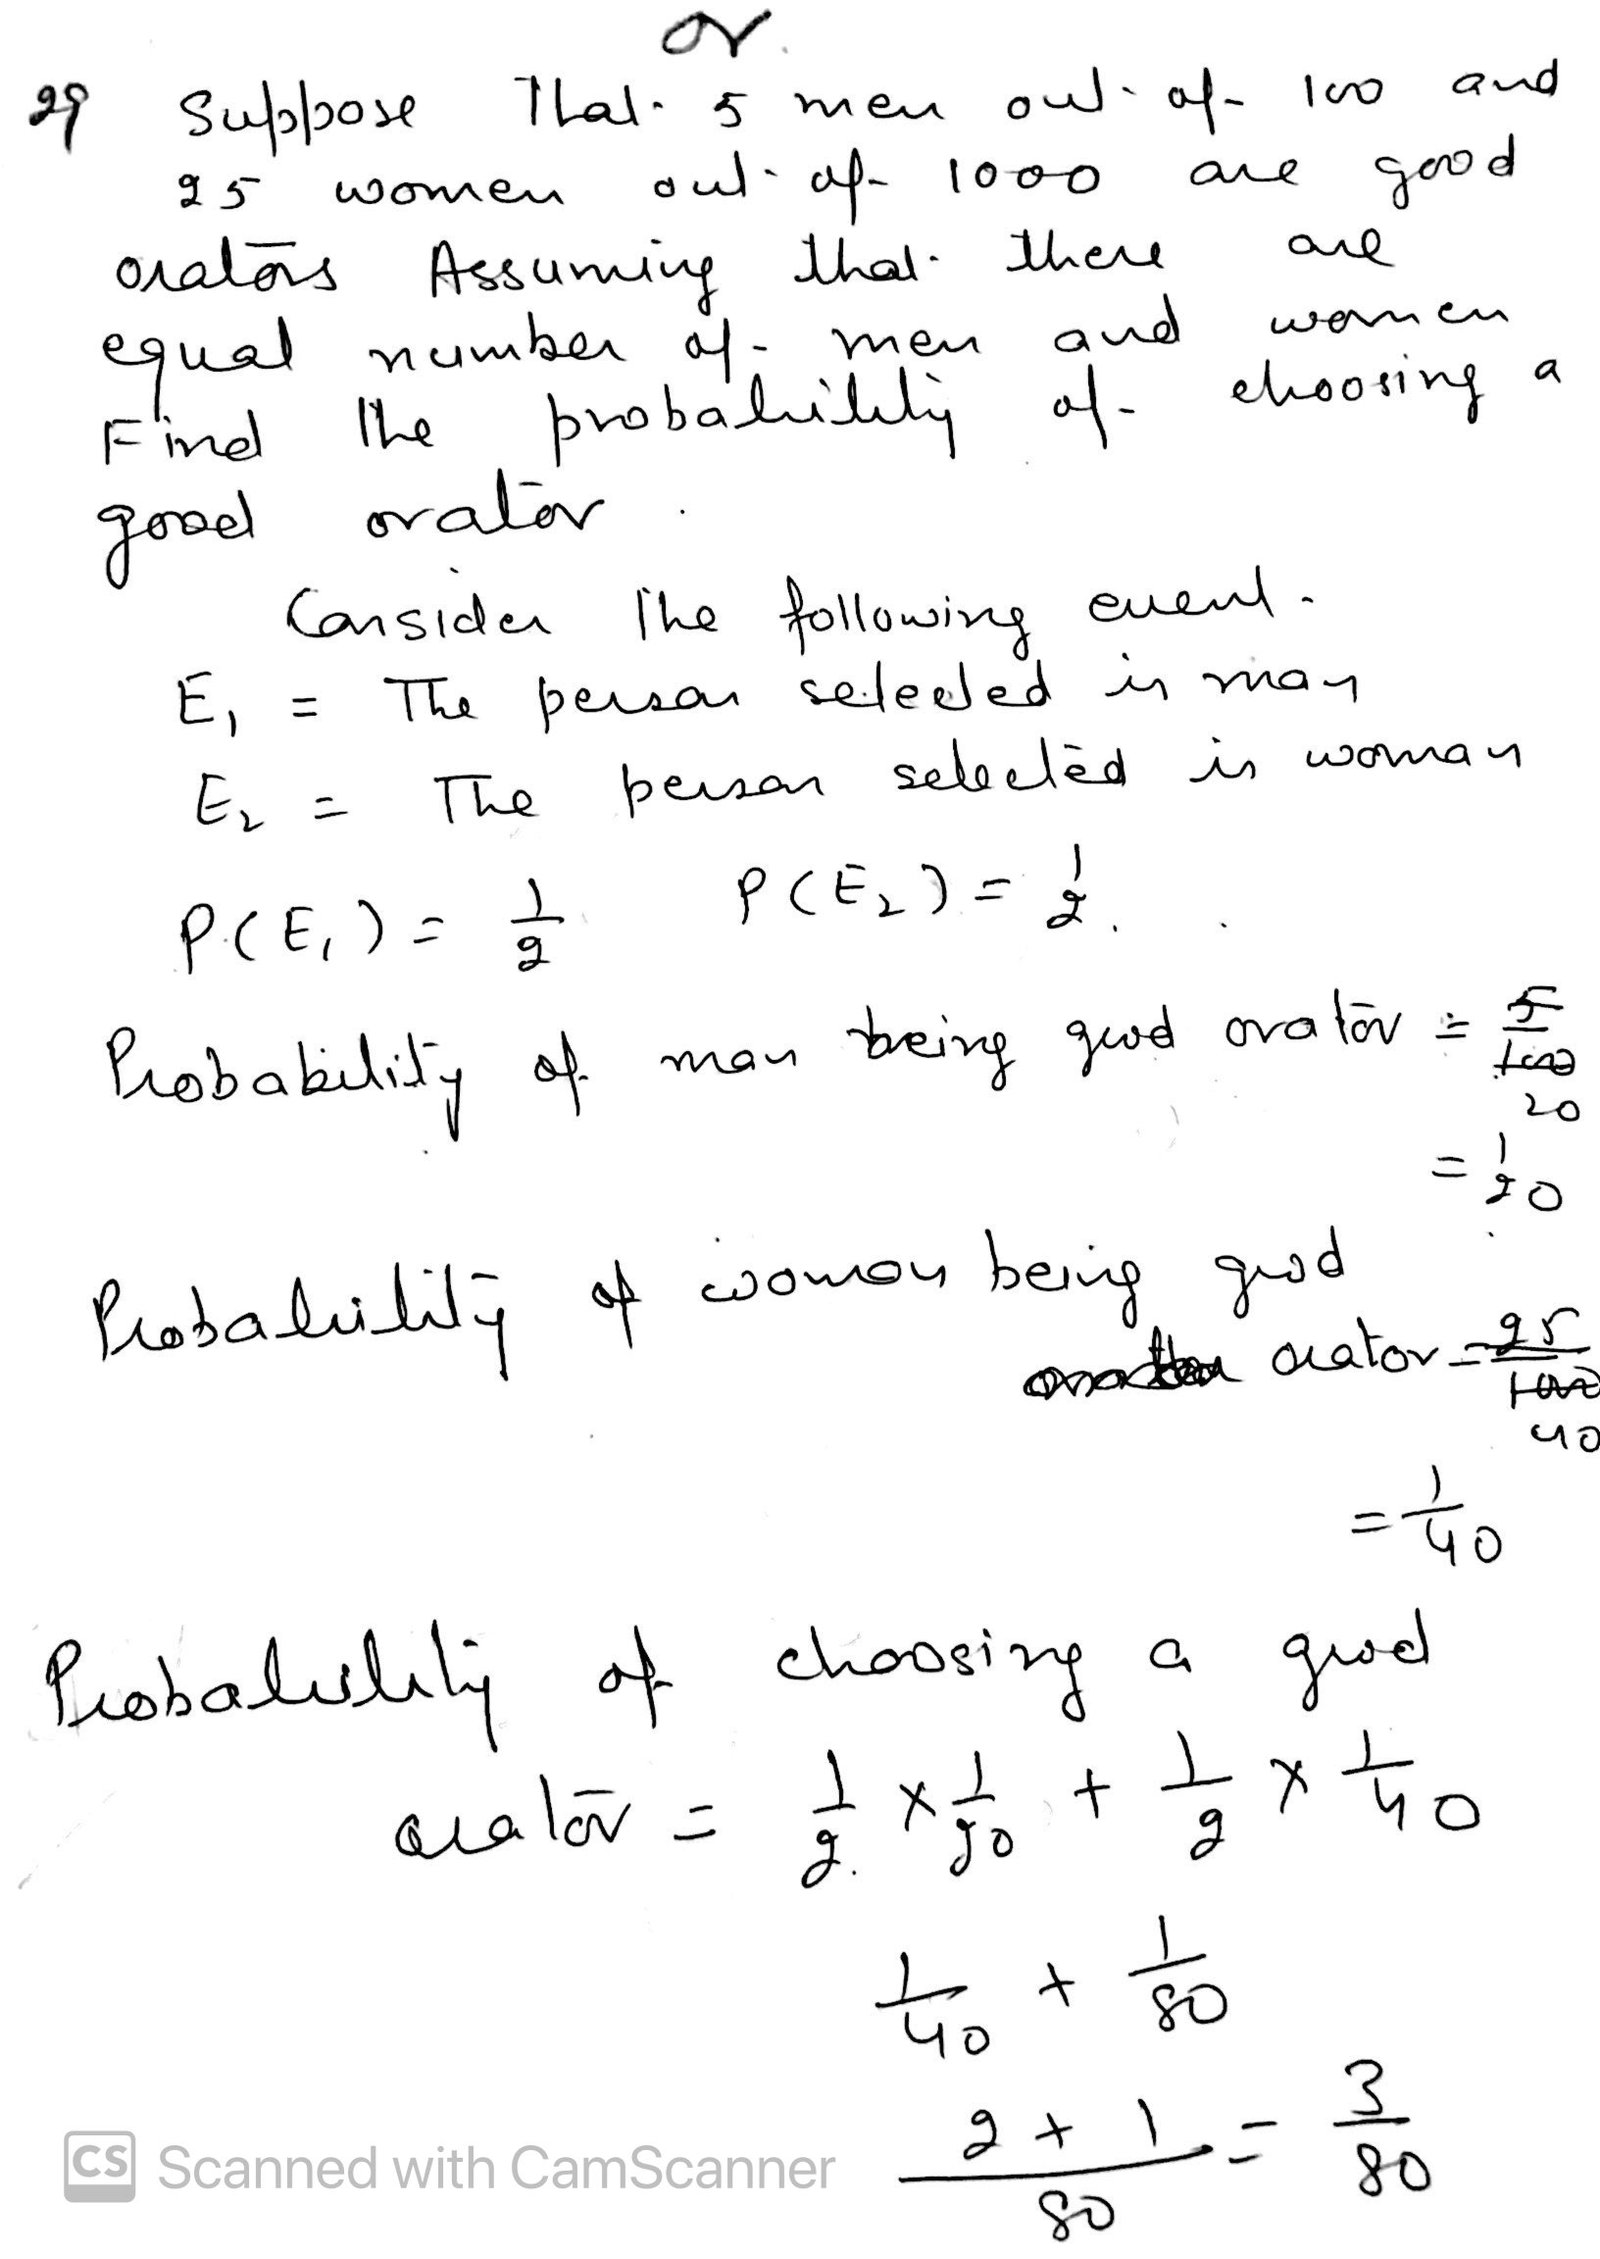 or
29 Suppose that 5 men out of 100 and
25 women out of 1000 are good
orators Assuming that there are
equal number of men and women
Find the probability of choosing a
good orator.
Consider the following event.
E₁ = The person selected is man
E₂ = The person selected is woman
P(E₁) = 1/2 P(E₂) = 1/2.
Probability of man being good orator = 5/100
20
= 1/20
Probability of woman being good
orator = 25/1000
40
= 1/40
Probability of choosing a good
orator = 1/2 × 1/20 + 1/2 × 1/40
1/40 + 1/80
2 + 1/80 = 3/80
CS Scanned with CamScanner